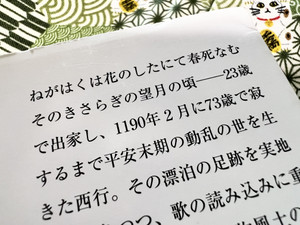 ねがはくは花のしたにて春死なむ
そのきさらぎの望月の頃――23歳
で出家し、1190年2月に73歳で寂
するまで平安末期の動乱の世を生
きた西行。その漂泊の足跡を実地
つつ、歌の読み込みに重
風土の